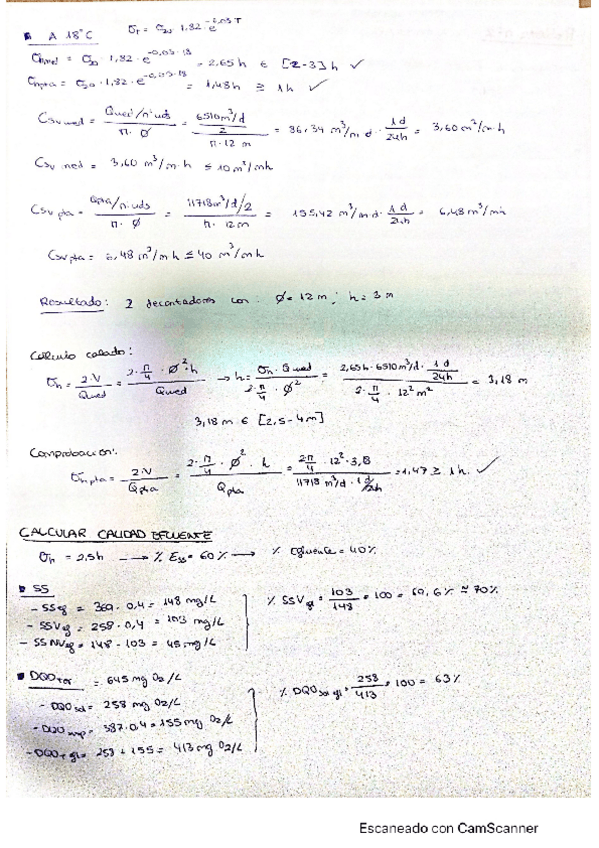 A 18°C σT = σ20 · 1,82 · e^-0,03·T
σhmed = σ20 · 1,82 · e^-0,03·18 = 2,65 h ∈ [2-3] h ✓
σhpta = σ20 · 1,82 · e^-0,03·18 = 1,48 h ≥ 1 h ✓
Csv med = (Qmed/nºuds)/(π · ø) = (6510 m³/d / 2)/(π · 12 m) = 86,34 m³/m d · 1d/24h = 3,60 m³/m·h
Csv med = 3,60 m³/m·h ≤ 10 m³/mh
Csv pta = (Qpta/nºuds)/(π · ø) = (11718 m³/d/2)/(π · 12m) = 155,42 m³/m d · 1d/24h = 6,48 m³/mh
Csv pta = 6,48 m³/m h ≤ 40 m³/mh
Resultado: 2 decantadores con: ø = 12 m; h = 3 m
Cálculo calado:
σh = 2·V/Qmed = (2 · π/4 · ø² · h)/Qmed → h = (σh · Qmed)/(2 · π/4 · ø²) = (2,65h · 6510 m³/d · 1d/24h)/(2 · π/4 · 12² m²) = 3,18 m
3,18 m ∈ [2,5 - 4 m]
Comprobación:
σh pta = 2·V/Qpta = (2 · π/4 · ø² · h)/Qpta = (2·π/4 · 12² · 3,8)/(11718 m³/d · 1d/24h) = 1,47 ≥ 1h. ✓
CALCULAR CALIDAD EFLUENTE
σh = 2,5h → % Ess = 60% → % Efluente = 40%
SS
- SSef = 369 · 0,4 = 148 mg/L
- SSVef = 258 · 0,4 = 103 mg/L
- SSNVef = 148 - 103 = 45 mg/L
% SSVef = 103/148 · 100 = 69,6% ≈ 70%
DQOTot = 645 mg O2/L
- DQO sol = 258 mg O2/L
- DQO susp = 387·0,4 = 155 mg O2/L
- DQOT ef = 258 + 155 = 413 mg O2/L
% DQO sol ef = 258/413 · 100 = 63%
Escaneado con CamScanner